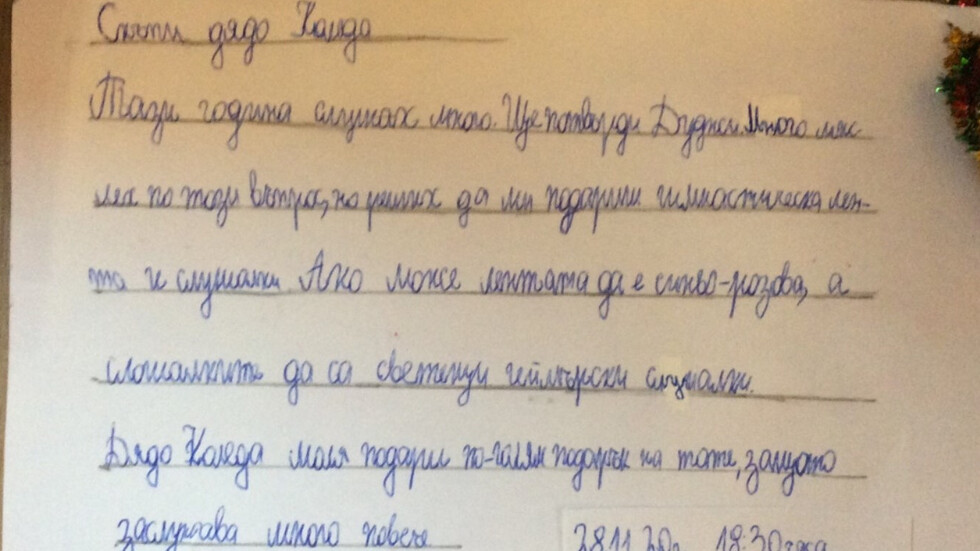 Скъпи дядо Коледа
Тази година слушках много. Ще потвърди Дуджи. Много мис-
лех по този въпрос, но реших да ми подариш гимнастическа лен-
та и слушалки Ако може лентата да е синьо-розова, а
слошалките да са светещи геймърски слушалки.
Дядо Коледа моля подари по-голям подарък на тати, защото
заслужава много повече
28.11.20г. 18:30 часа